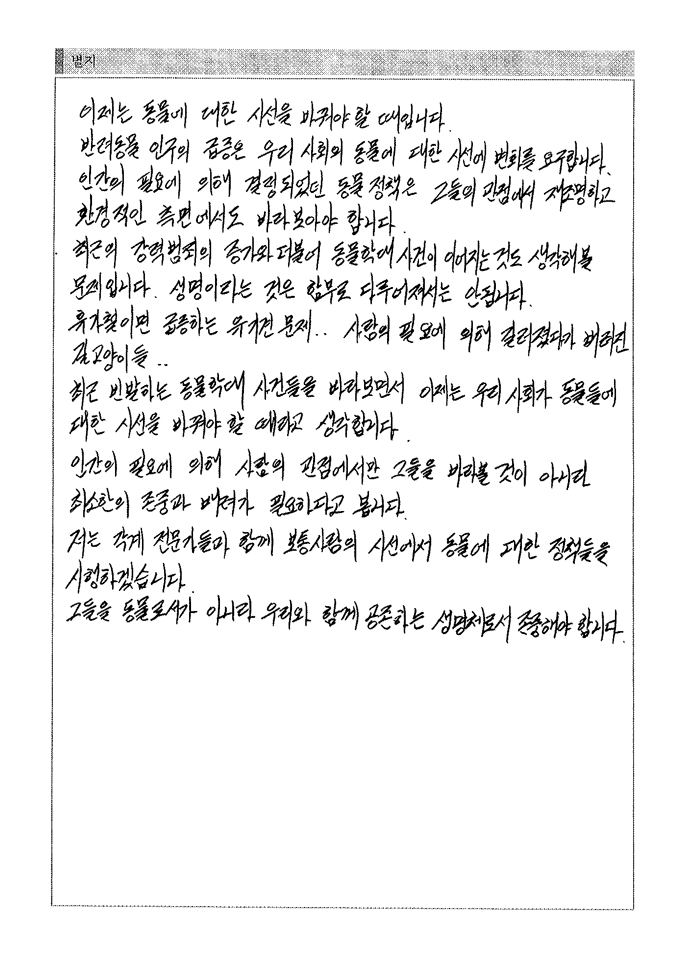 별지
이제는 동물에 대한 시선을 바꿔야 할 때입니다.
반려동물 인구의 급증은 우리 사회의 동물에 대한 시선에 변화를 요구합니다.
인간의 필요에 의해 결정되었던 동물정책은 그들의 관점에서 재조명하고
환경적인 측면에서도 바라보아야 합니다.
최근의 강력범죄의 증가와 더불어 동물학대 사건이 이어지는 것도 생각해볼
문제입니다. 생명이라는 것은 함부로 다루어져서는 안됩니다.
휴가철이면 급증하는 유기견 문제.. 사람의 필요에 의해 길러졌다가 버려진
길고양이들..
최근 빈발하는 동물학대 사건들을 바라보면서 이제는 우리 사회가 동물들에
대한 시선을 바꿔야 할 때라고 생각합니다.
인간의 필요에 의해 사람의 관점에서만 그들을 바라볼 것이 아니라
최소한의 존중과 배려가 필요하다고 봅니다.
저는 각계 전문가들과 함께 보통사람의 시선에서 동물에 대한 정책들을
시행하겠습니다.
그들을 동물로서가 아니라 우리와 함께 공존하는 생명체로서 존중해야 합니다.